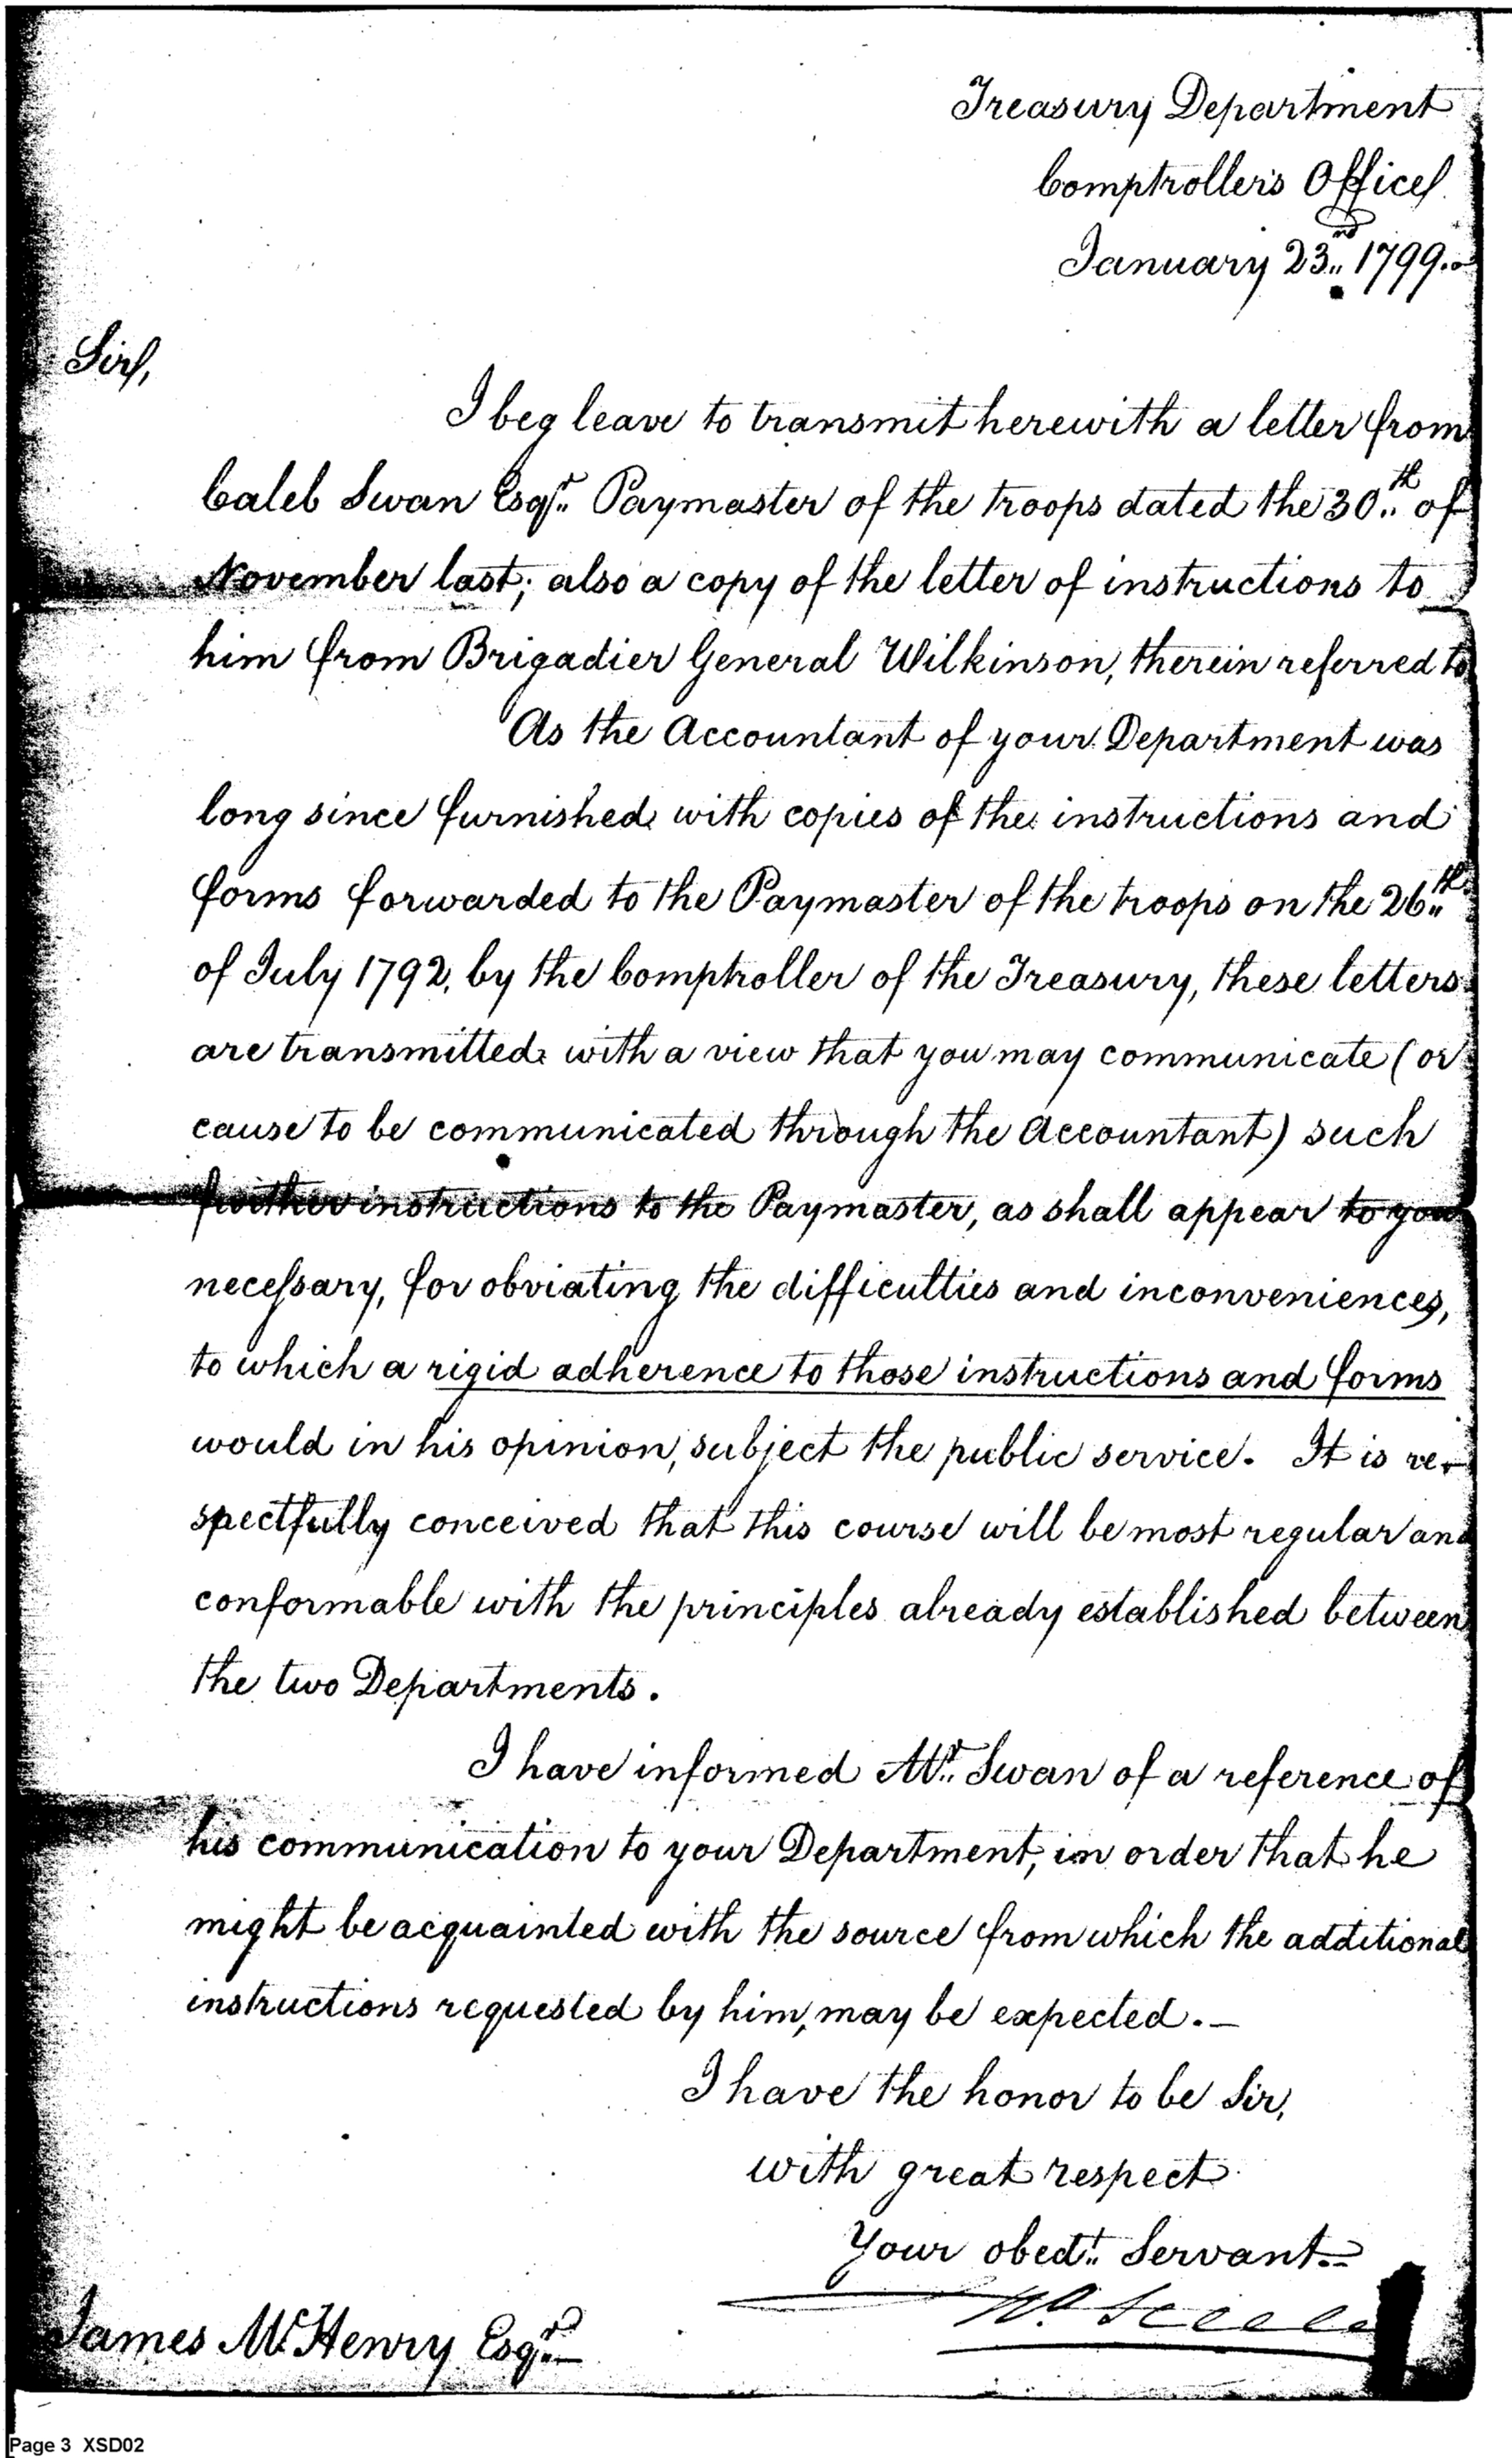 Treasury Department
Comptroller's Office
January 23nd 1799.
Sir,
I beg leave to transmit herewith a letter from
Caleb Swan Esqr. Paymaster of the troops dated the 30th of
November last; also a copy of the letter of instructions to
him from Brigadier General Wilkinson, therein referred to
As the Accountant of your Department was
long since furnished with copies of the instructions and
forms forwarded to the Paymaster of the troops on the 26th
of July 1792, by the Comptroller of the Treasury, these letters
are transmitted with a view that you may communicate (or
cause to be communicated through the Accountant) such
further instructions to the Paymaster, as shall appear to you
necessary, for obviating the difficulties and inconveniences,
to which a rigid adherence to those instructions and forms
would in his opinion, subject the public service. It is re-
spectfully conceived that this course will be most regular and
conformable with the principles already established between
the two Departments.
I have informed Mr. Swan of a reference of
his communication to your Department, in order that he
might be acquainted with the source from which the additional
instructions requested by him, may be expected.—
I have the honor to be Sir,
with great respect
Your obedt. Servant.
James McHenry Esqr.
Page 3 XSD02